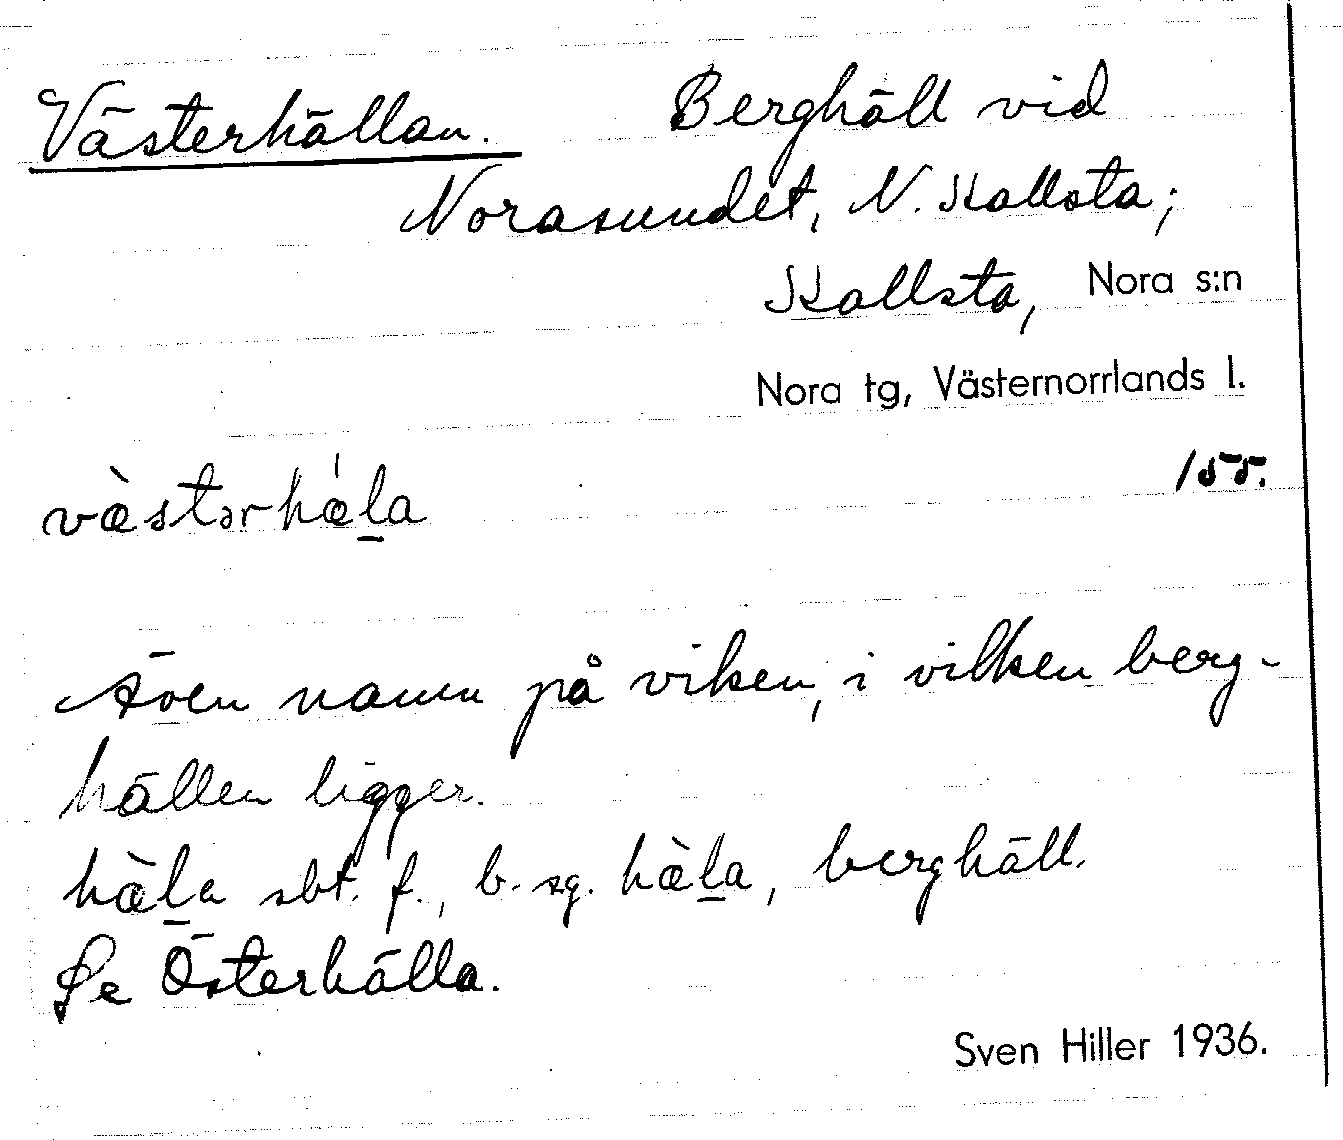 Västerhällan. Berghäll vid
Norasundet, N. Kallsta;
Kallsta, Nora s:n
Nora tg, Västernorrlands l.
155.
væ̀stərhǽl̲a
Även namn på viken, i vilken berg-
hällen ligger.
hæ̀l̲a sbt. f., b. sg. hæ̀l̲a, berghäll.
Se Österhälla.
Sven Hiller 1936.